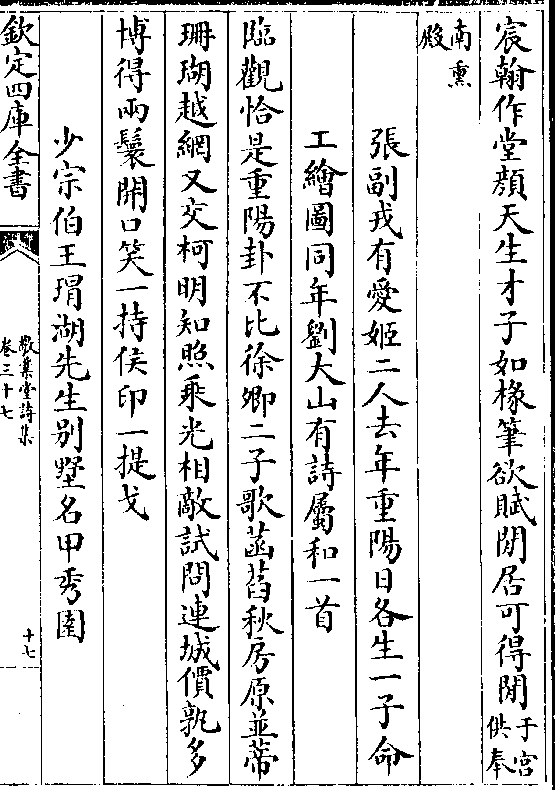 宸翰作堂顔天生才子如椽筆欲賦閒居可得閒于宫供奉
南熏殿
張副戎有愛姬二人去年重陽日各生一子命
工繪圖同年劉大山有詩屬和一首
臨觀恰是重陽卦不比徐卿二子歌菡萏秋房原並蒂
珊瑚越網又交柯明知照乘光相敵試問連城價孰多
博得兩鬟開口笑一持侯印一提戈
少宗伯王𤔡湖先生别墅名甲秀園
欽定四庫全書
敬業堂詩集
卷三十七
十七